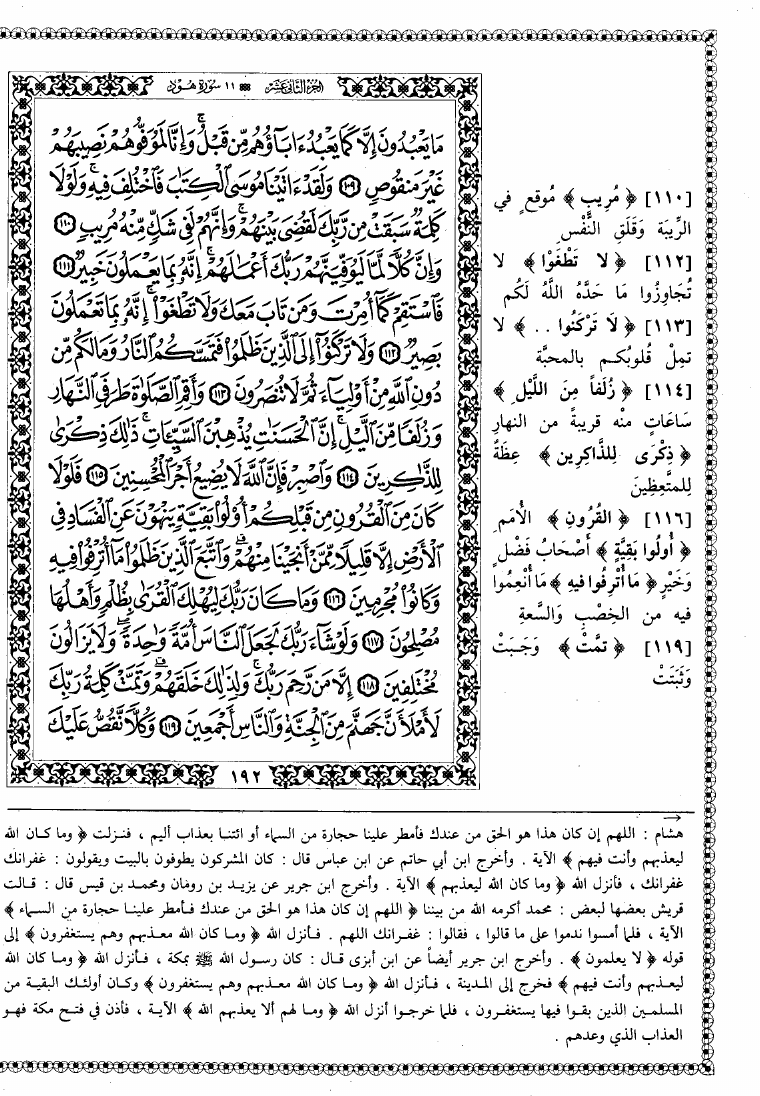 الجزء الثاني عشر ١١ سورة هود
مَا يَعْبُدُونَ إِلَّا كَمَا يَعْبُدُ ءَابَآؤُهُم مِّن قَبْلُ ۚ وَإِنَّا لَمُوَفُّوهُمْ نَصِيبَهُمْ
غَيْرَ مَنقُوصٍ ﴿١٠٩﴾ وَلَقَدْ ءَاتَيْنَا مُوسَى ٱلْكِتَٰبَ فَٱخْتُلِفَ فِيهِ ۚ وَلَوْلَا
كَلِمَةٌ سَبَقَتْ مِن رَّبِّكَ لَقُضِىَ بَيْنَهُمْ ۚ وَإِنَّهُمْ لَفِى شَكٍّ مِّنْهُ مُرِيبٍ ﴿١١٠﴾
وَإِنَّ كُلًّا لَّمَّا لَيُوَفِّيَنَّهُمْ رَبُّكَ أَعْمَٰلَهُمْ ۚ إِنَّهُۥ بِمَا يَعْمَلُونَ خَبِيرٌ ﴿١١١﴾
فَٱسْتَقِمْ كَمَآ أُمِرْتَ وَمَن تَابَ مَعَكَ وَلَا تَطْغَوْا۟ ۚ إِنَّهُۥ بِمَا تَعْمَلُونَ
بَصِيرٌ ﴿١١٢﴾ وَلَا تَرْكَنُوٓا۟ إِلَى ٱلَّذِينَ ظَلَمُوا۟ فَتَمَسَّكُمُ ٱلنَّارُ وَمَا لَكُم مِّن
دُونِ ٱللَّهِ مِنْ أَوْلِيَآءَ ثُمَّ لَا تُنصَرُونَ ﴿١١٣﴾ وَأَقِمِ ٱلصَّلَوٰةَ طَرَفَىِ ٱلنَّهَارِ
وَزُلَفًا مِّنَ ٱلَّيْلِ ۚ إِنَّ ٱلْحَسَنَٰتِ يُذْهِبْنَ ٱلسَّيِّـَٔاتِ ۚ ذَٰلِكَ ذِكْرَىٰ
لِلذَّٰكِرِينَ ﴿١١٤﴾ وَٱصْبِرْ فَإِنَّ ٱللَّهَ لَا يُضِيعُ أَجْرَ ٱلْمُحْسِنِينَ ﴿١١٥﴾ فَلَوْلَا
كَانَ مِنَ ٱلْقُرُونِ مِن قَبْلِكُمْ أُو۟لُوا۟ بَقِيَّةٍ يَنْهَوْنَ عَنِ ٱلْفَسَادِ فِى
ٱلْأَرْضِ إِلَّا قَلِيلًا مِّمَّنْ أَنجَيْنَا مِنْهُمْ ۗ وَٱتَّبَعَ ٱلَّذِينَ ظَلَمُوا۟ مَآ أُتْرِفُوا۟ فِيهِ
وَكَانُوا۟ مُجْرِمِينَ ﴿١١٦﴾ وَمَا كَانَ رَبُّكَ لِيُهْلِكَ ٱلْقُرَىٰ بِظُلْمٍ وَأَهْلُهَا
مُصْلِحُونَ ﴿١١٧﴾ وَلَوْ شَآءَ رَبُّكَ لَجَعَلَ ٱلنَّاسَ أُمَّةً وَٰحِدَةً ۖ وَلَا يَزَالُونَ
مُخْتَلِفِينَ ﴿١١٨﴾ إِلَّا مَن رَّحِمَ رَبُّكَ ۚ وَلِذَٰلِكَ خَلَقَهُمْ ۗ وَتَمَّتْ كَلِمَةُ رَبِّكَ
لَأَمْلَأَنَّ جَهَنَّمَ مِنَ ٱلْجِنَّةِ وَٱلنَّاسِ أَجْمَعِينَ ﴿١١٩﴾ وَكُلًّا نَّقُصُّ عَلَيْكَ
١٩٢
[١١٠] ﴿ مُرِيبٍ ﴾ مُوقِعٍ في
الرِّيبَة وَقَلَقِ النَّفْسِ
[١١٢] ﴿ لا تَطْغَوْا ﴾ لا
تُجَاوِزُوا مَا حَدَّهُ اللَّهُ لَكُم
[١١٣] ﴿ لَا تَرْكَنُوا .. ﴾ لا
تمِلْ قُلوبُكم بالمحبَّة
[١١٤] ﴿ زُلَفاً مِنَ اللَّيْلِ ﴾
سَاعَاتٍ منْه قريبةً من النهارِ
﴿ ذِكْرَى لِلذَّاكِرِين ﴾ عِظَةً
لِلمتَّعِظِينَ
[١١٦] ﴿ القُرُونِ ﴾ الأُمَمِ
﴿ أُولُوا بَقِيَّةٍ ﴾ أَصْحَابُ فَضْلٍ
وَخَيْرٍ ﴿ مَا أُتْرِفُوا فيهِ ﴾ مَا أُنْعِمُوا
فيه من الخِصْبِ وَالسَّعةِ
[١١٩] ﴿ تمَّتْ ﴾ وَجَبَتْ
وَثَبَتَتْ
هشام : اللهم إن كان هذا هو الحق من عندك فأمطر علينا حجارة من السماء أو ائتنا بعذاب أليم ، فنزلت ﴿ وما كان الله
ليعذبهم وأنت فيهم ﴾ الآية . وأخرج ابن أبي حاتم عن ابن عباس قال : كان المشركون يطوفون بالبيت ويقولون : غفرانك
غفرانك ، فأنزل الله ﴿ وما كان الله ليعذبهم ﴾ الآية . وأخرج ابن جرير عن يزيد بن رومان ومحمد بن قيس قال : قالت
قريش بعضها لبعض : محمد أكرمه الله من بيننا ﴿ اللهم إن كان هذا هو الحق من عندك فأمطر علينا حجارة من السماء ﴾
الآية ، فلما أمسوا ندموا على ما قالوا ، فقالوا : غفرانك اللهم . فأنزل الله ﴿ وما كان الله معذبهم وهم يستغفرون ﴾ إلى
قوله ﴿ لا يعلمون ﴾ . وأخرج ابن جرير أيضاً عن ابن أبزى قال : كان رسول الله ﷺ بمكة ، فأنزل الله ﴿ وما كان الله
ليعذبهم وأنت فيهم ﴾ فخرج إلى المدينة ، فأنزل الله ﴿ وما كان الله معذبهم وهم يستغفرون ﴾ وكان أولئك البقية من
المسلمين الذين بقوا فيها يستغفرون ، فلما خرجوا أنزل الله ﴿ وما لهم ألا يعذبهم الله ﴾ الآية ، فأذن في فتح مكة فهو
العذاب الذي وعدهم .